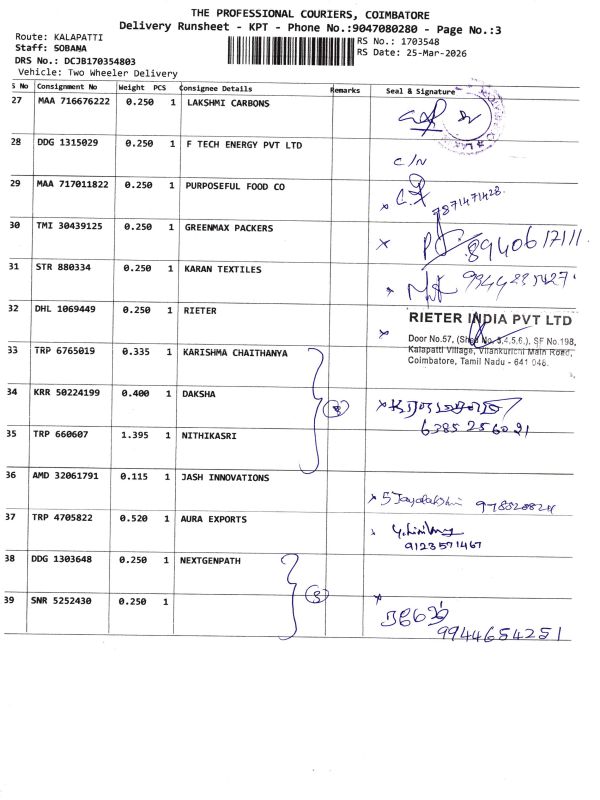 THE PROFESSIONAL COURIERS, COIMBATORE
Delivery Runsheet - KPT - Phone No.:9047080280 - Page No.:3
Route: KALAPATTI
RS No.: 1703548
Staff: SOBANA
RS Date: 25-Mar-2026
DRS No.: DCJB170354803
Vehicle: Two Wheeler Delivery
S No Consignment No Weight PCS Consignee Details Remarks Seal & Signature
27 MAA 716676222 0.250 1 LAKSHMI CARBONS
28 DDG 1315029 0.250 1 F TECH ENERGY PVT LTD
C/N
29 MAA 717011822 0.250 1 PURPOSEFUL FOOD CO
7871471428.
30 TMI 30439125 0.250 1 GREENMAX PACKERS
8940617111
31 STR 880334 0.250 1 KARAN TEXTILES
32 DHL 1069449 0.250 1 RIETER
RIETER INDIA PVT LTD
Door No.57, (Shed No. 3,4,5,6,), SF No.198,
Kalapatti Village, Vilankurichi Main Road,
Coimbatore, Tamil Nadu - 641 048.
33 TRP 6765019 0.335 1 KARISHMA CHAITHANYA
34 KRR 50224199 0.400 1 DAKSHA
6385256021
35 TRP 660607 1.395 1 NITHIKASRI
36 AMD 32061791 0.115 1 JASH INNOVATIONS
37 TRP 4705822 0.520 1 AURA EXPORTS
9123571467
38 DDG 1303648 0.250 1 NEXTGENPATH
39 SNR 5252430 0.250 1
9944654251